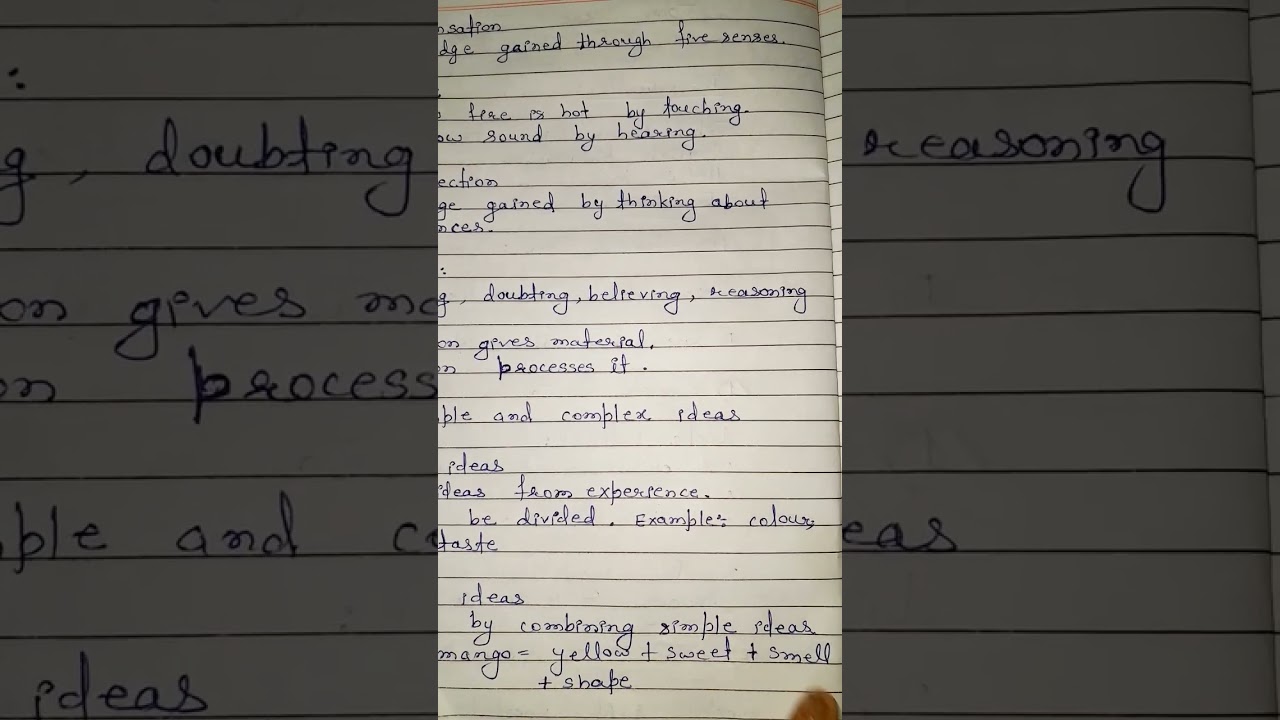 nsation
dge gained through five senses.
:
fire is hot by touching.
ow sound by hearing.
ection
ge gained by thinking about
nces.
:
g, doubting, believing, reasoning
on gives material.
on processes it.
ple and complex ideas
ideas
ideas from experience.
be divided. Example: colour,
taste
ideas
by combining simple ideas
mango = yellow + sweet + smell
+ shape